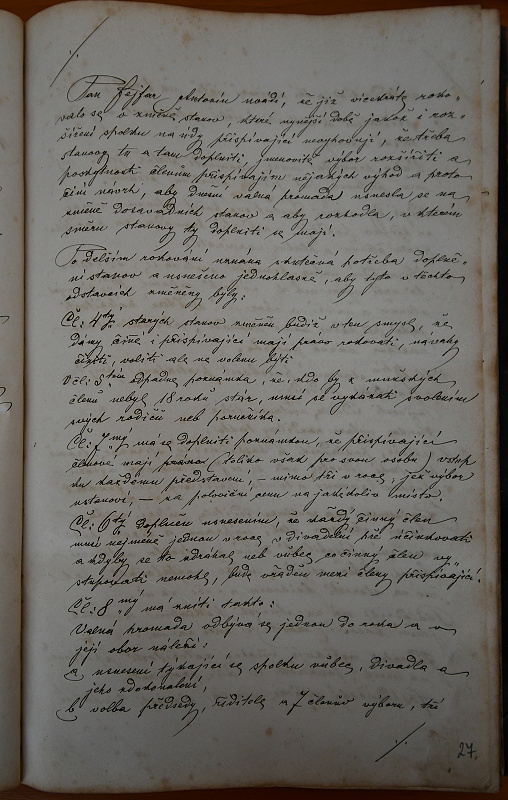 Pan Fejfar Antonín uvádí, že již vícekráte roko-
valo se o změně stanov, které nynější době jakož i roz-
šíření spolku na údy přispívající nevyhovují, že třeba
stanovy tu a tam doplniti, jmenovitě výbor rozšířiti a
poskytnouti členům přispívajícím nějakých výhod a proto
činí návrh, aby dnešní valná hromada usnesla se na
změně dosavadních stanov a aby rozhodla, v kterém
směru stanovy ty doplniti se mají.
Po delším rokování uznána skutečná potřeba doplně-
ní stanov a usnešeno jednohlasně, aby tyto v těchto
odstavcích změněny byly:
Čl: 4tý starých stanov změněn budiž v ten smysl, že
dámy činné i přispívající mají právo rokovati, návrhy
činiti, voliti ale ne voleny býti
V čl: 5tém odpadne poznámka, že, kdo by z mužských
členů nebyl 18 roků stár, musí se vykázati svolením
svých rodičů neb poručníka.
Čl: 7mý má se doplniti poznámkou, že přispívající
členové mají právo (toliko však pro svou osobu) vstup
ku každému představení, – mimo tří v roce, jež výbor
ustanoví, – za poloviční cenu na jakékoliv místo.
Čl: 6tý doplněn usnesením, že každý činný člen
musí nejméně jednou v roce v divadelní hře účinkovati
a kdyby se to zdráhal neb vůbec co činný člen vy-
stupovati nemohl, bude vřáděn mezi členy přispívající.
Čl: 8mý má zníti takto:
Valná hromada odbývá se jednou do roka a v
její obor náleží:
a, usnesení týkající se spolku vůbec, divadla a
jeho zdokonalení,
b, volba předsedy, ředitele a 7 členův výboru, tří
./.
27.